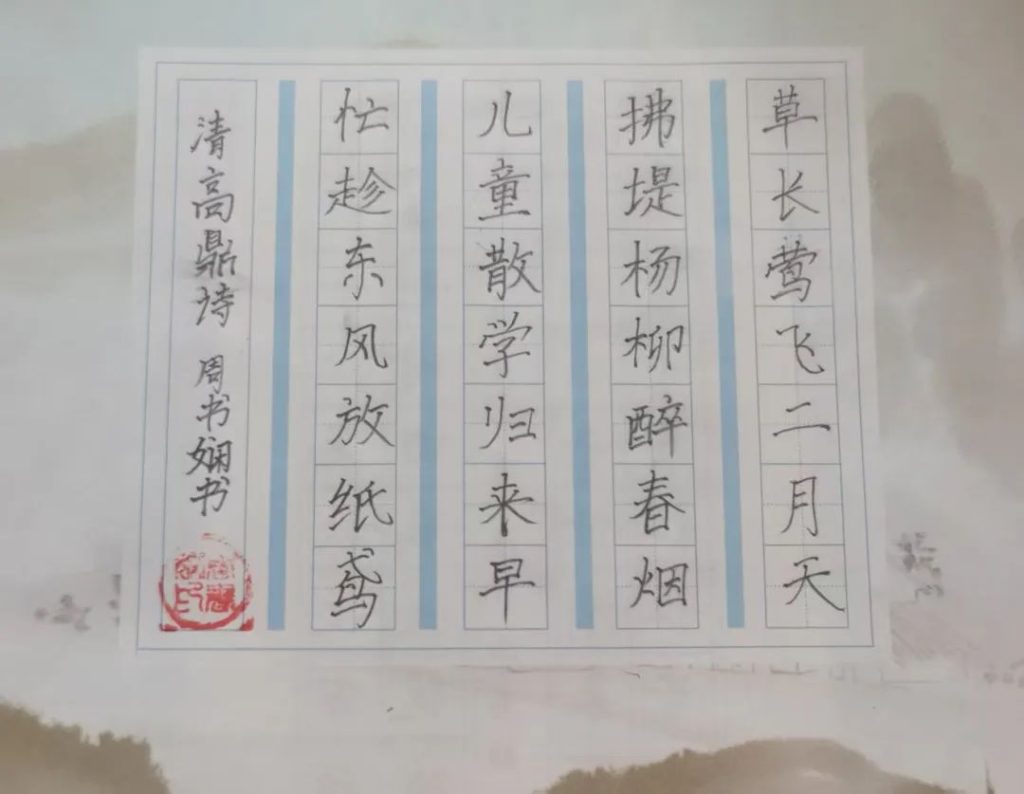 草长莺飞二月天
拂堤杨柳醉春烟
儿童散学归来早
忙趁东风放纸鸢
清高鼎诗 周书娴书